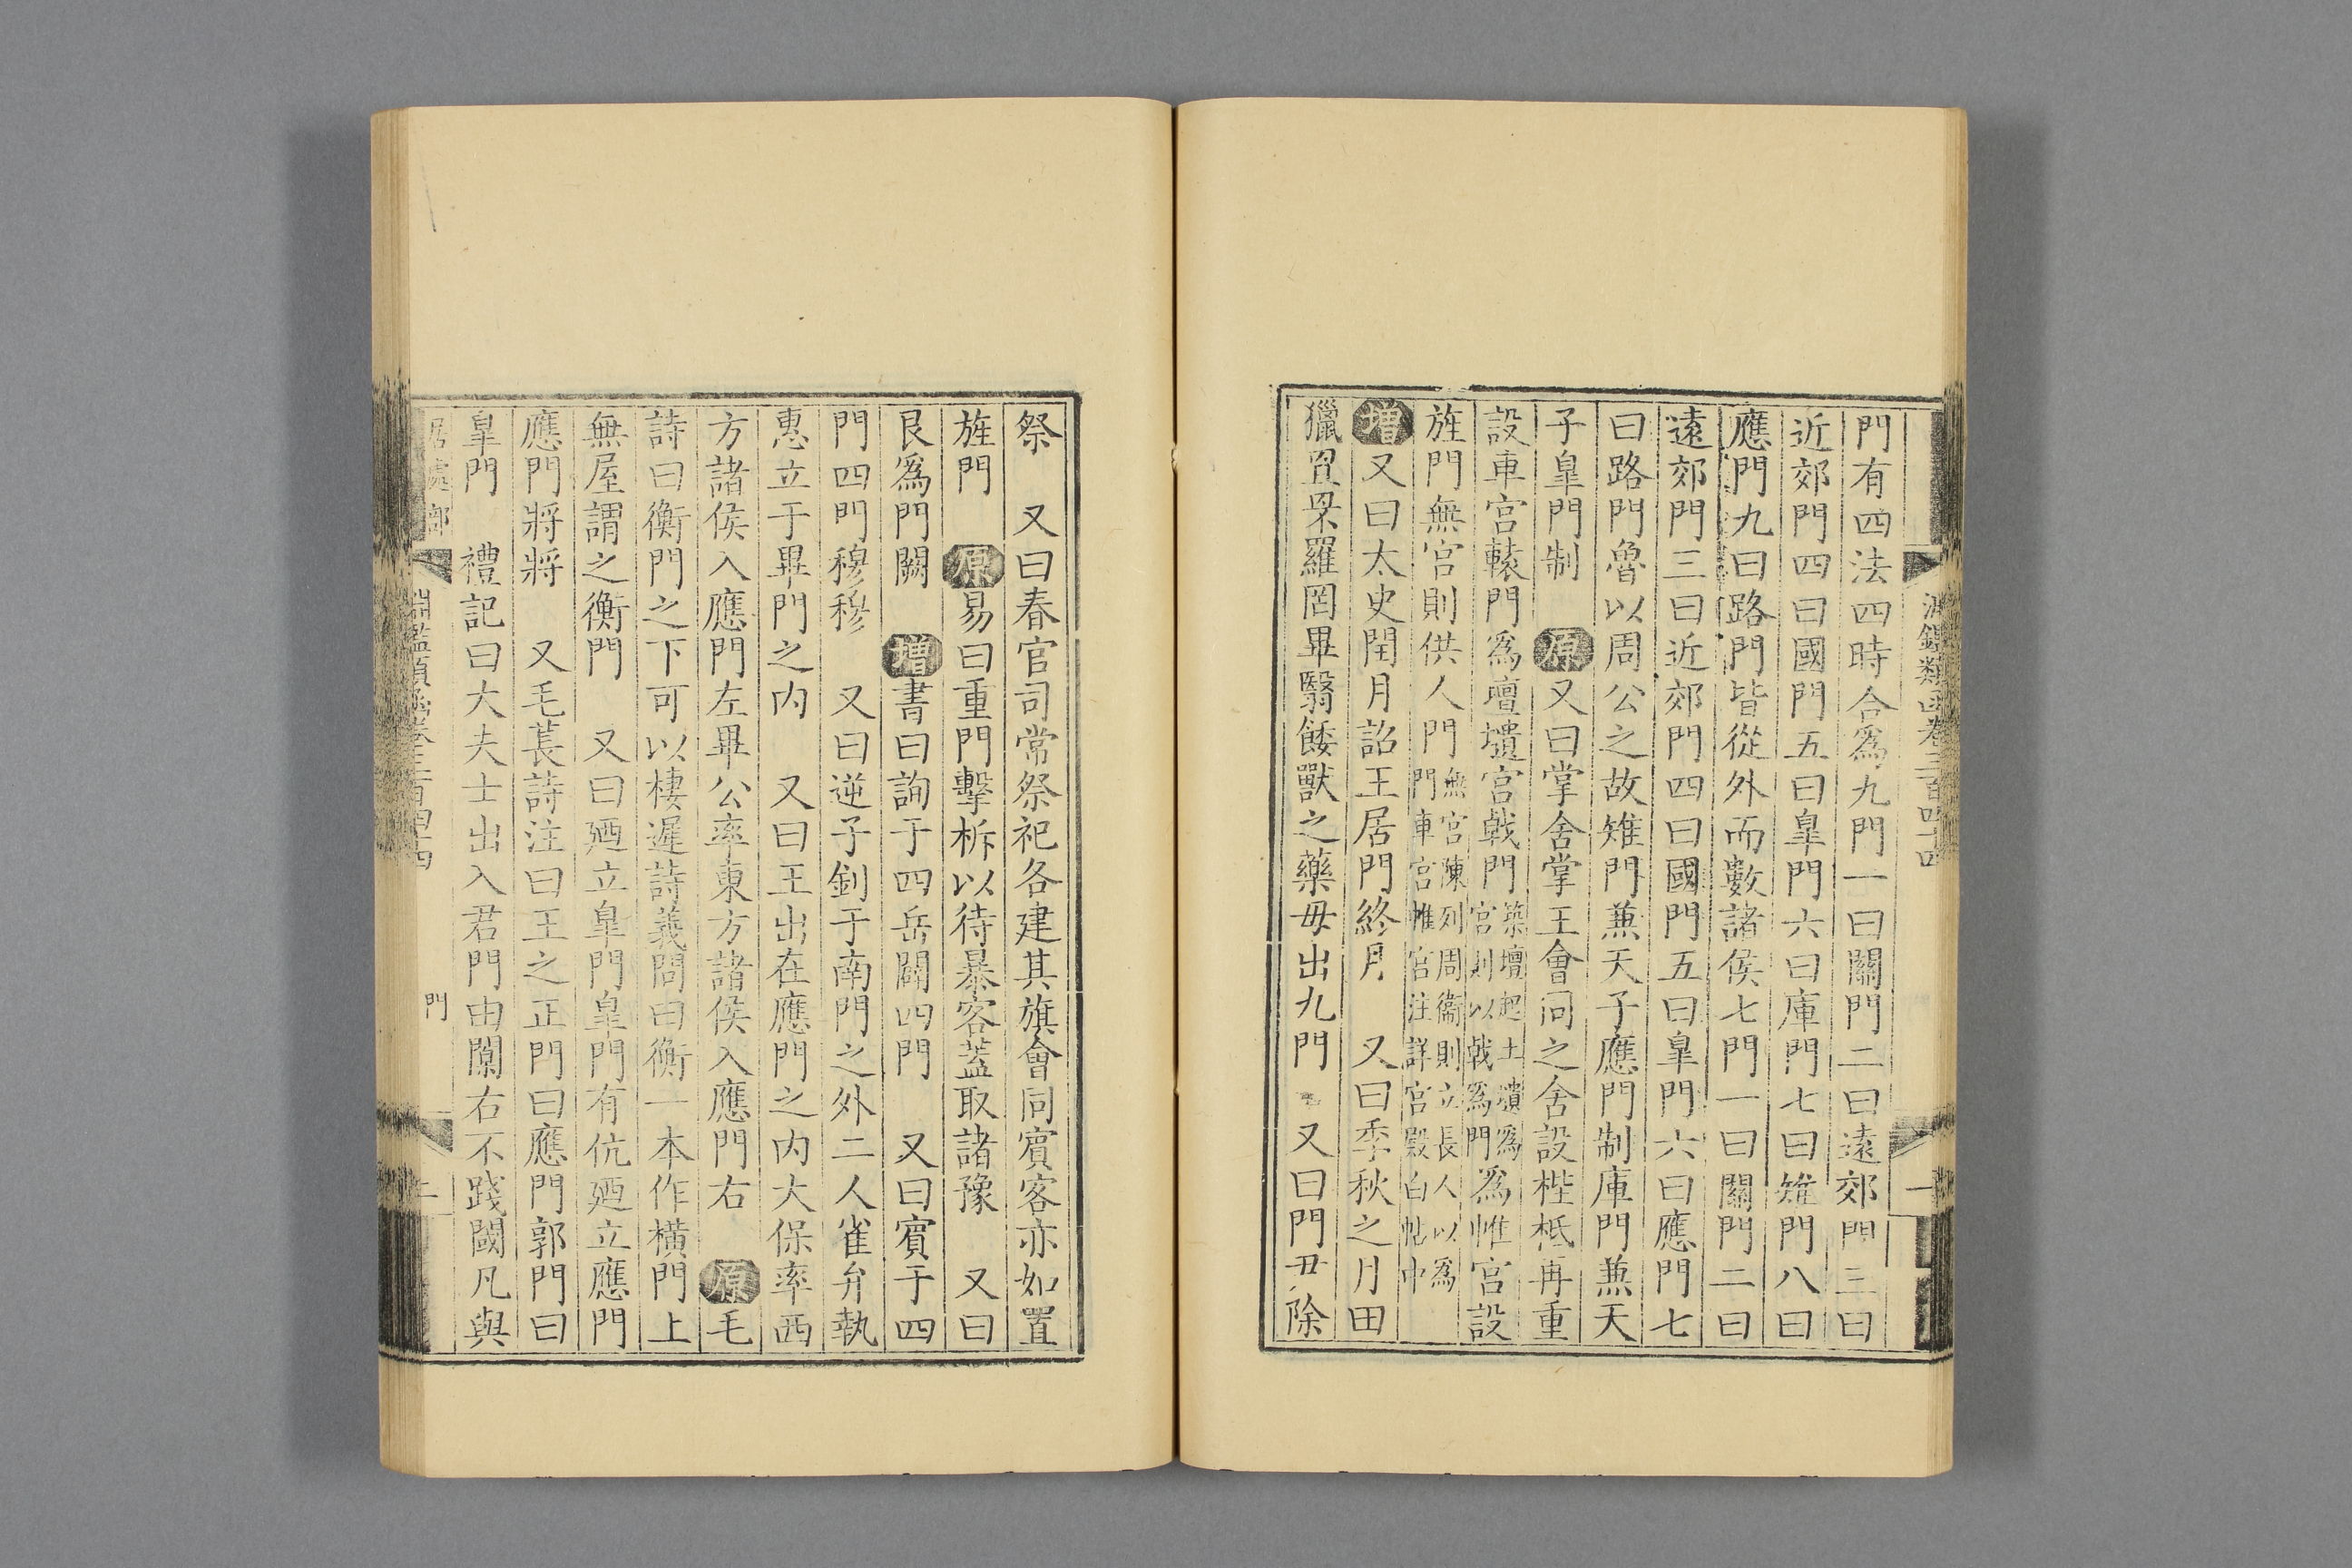 門有四法四時合爲九門一曰關門二曰遠郊門三曰
近郊門四曰國門五曰臯門六曰庫門七曰雉門八曰
應門九曰路門皆從外而數諸侯七門一曰關門二曰
遠郊門三曰近郊門四曰國門五曰臯門六曰應門七
曰路門魯以周公之故雉門兼天子應門制庫門兼天
子臯門制 原又曰掌舍掌王會同之舍設梐枑再重
設車宮轅門爲壇壝宮戟門築壇起土壝爲宮則以戟爲門爲帷宮設
旌門無宮則供人門無宮陳列周衞則立長人以爲門車宮帷宮注詳宮殿白帖中
增又曰太史閏月詔王居門終月 又曰季秋之月田
獵罝罘羅罔畢翳餧獸之藥毋出九門 又曰門丑除
淵鑑類函卷三百四十四
一
祭 又曰春官司常祭祀各建其旗會同賓客亦如置
旌門 原易曰重門擊柝以待暴客蓋取諸豫 又曰
艮爲門闕 增書曰詢于四岳闢四門 又曰賓于四
門四門穆穆 又曰逆子釗于南門之外二人雀弁執
惠立于畢門之內 又曰王出在應門之內大保率西
方諸侯入應門左畢公率東方諸侯入應門右 原毛
詩曰衡門之下可以棲遲詩義問曰衡一本作橫門上
無屋謂之衡門 又曰廼立臯門臯門有伉廼立應門
應門將將 又毛萇詩注曰王之正門曰應門郭門曰
臯門 禮記曰大夫士出入君門由闑右不踐閾凡與
居處部
淵鑑類函卷三百四十四
門
二